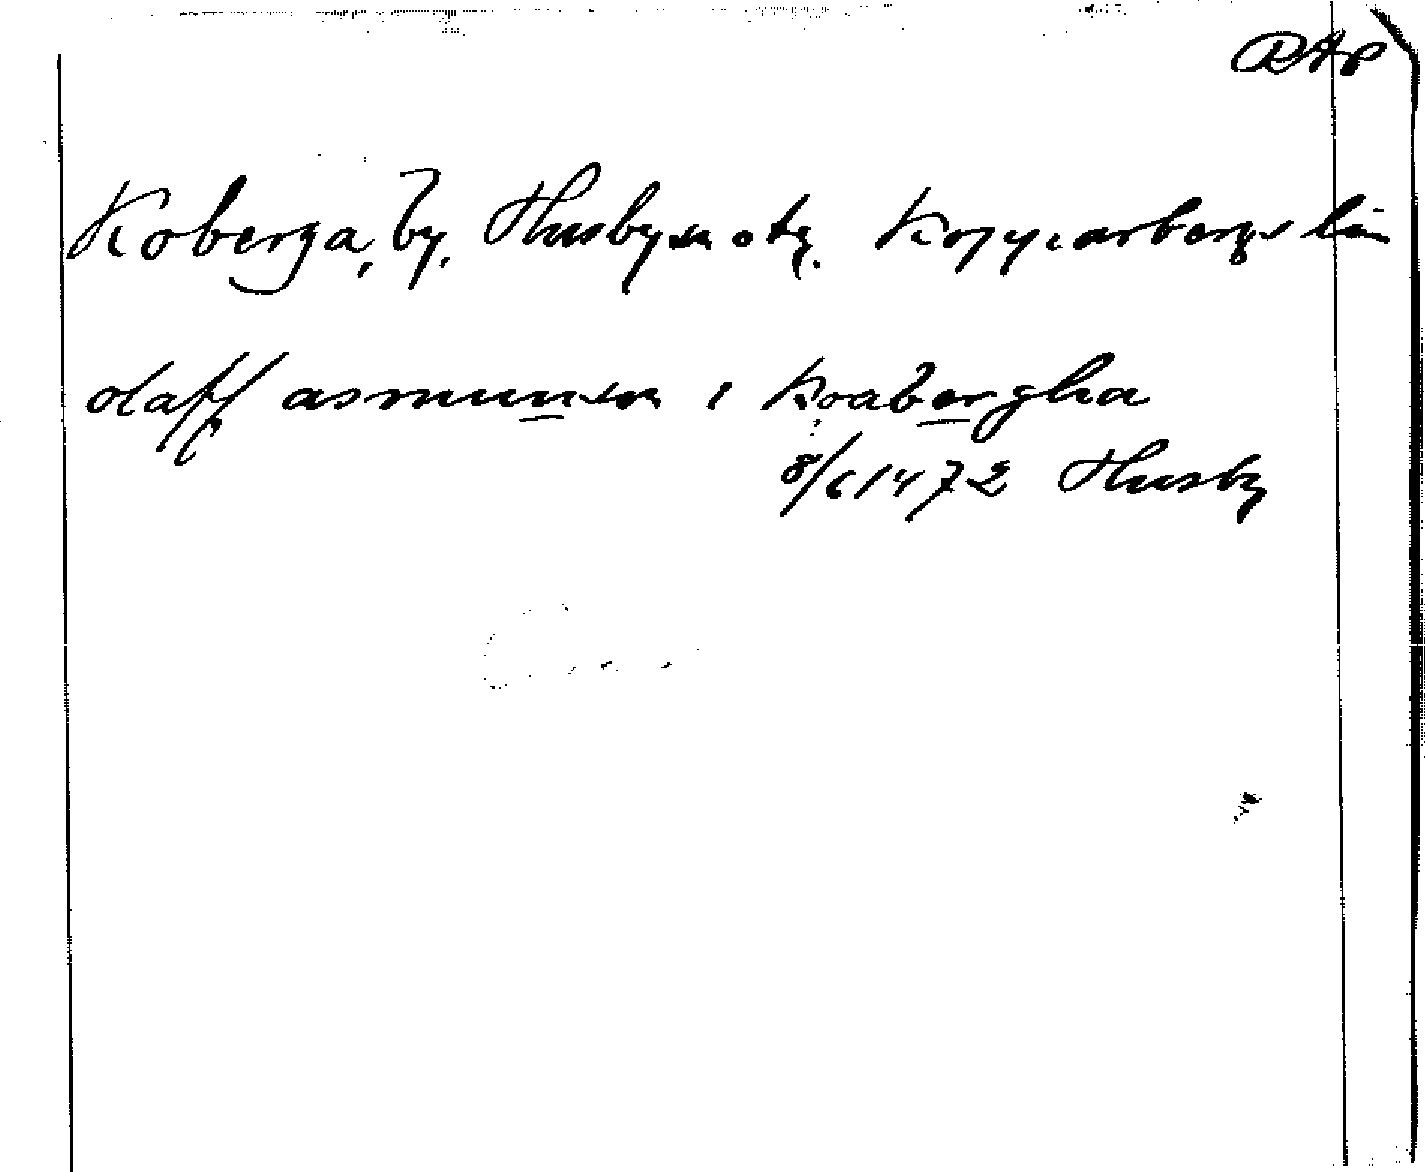 RAP
Koberga, by, Husby sn o tg. Kopparbergs län
olaff asmunson i koabergha
8/6 1472 Husby